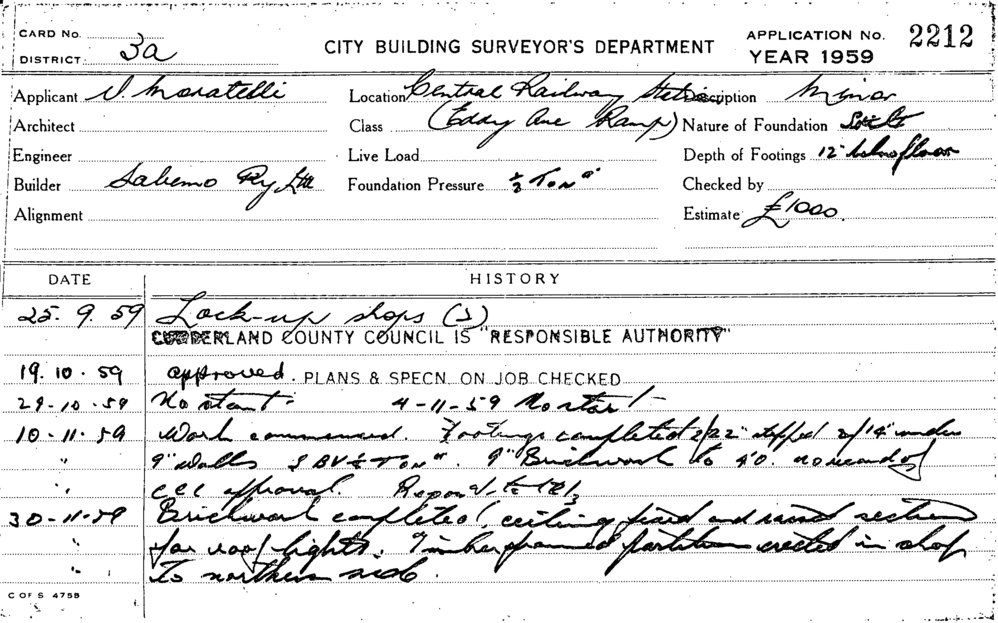 CARD No.
DISTRICT. 3a
CITY BUILDING SURVEYOR'S DEPARTMENT
APPLICATION No. 2212
YEAR 1959
Applicant V. Moratelli Location Central Railway Station Description Minor
Architect Class (Eddy Ave Ramp) Nature of Foundation
Engineer Live Load Depth of Footings 12" below floor
Builder Sabemo Pty Ltd Foundation Pressure ½ Ton □" Checked by
Alignment Estimate £1000.
DATE HISTORY
25. 9. 59 Lock-up shops
CUMBERLAND COUNTY COUNCIL IS "RESPONSIBLE AUTHORITY"
19. 10. 59 approved. PLANS & SPECN. ON JOB CHECKED
29-10-59 No start. 4-11-59 No start
10-11-59 Work commenced. Footings completed stepped under
" 9" walls Ton □". 9" Brickwork to 4'0. no record of
" CCC approval. Report
30-11-59 Brickwork completed, ceiling fixed and raised section
" for roof lights. Timber framed partition erected in shop
" to northern side.
C OF S 475B